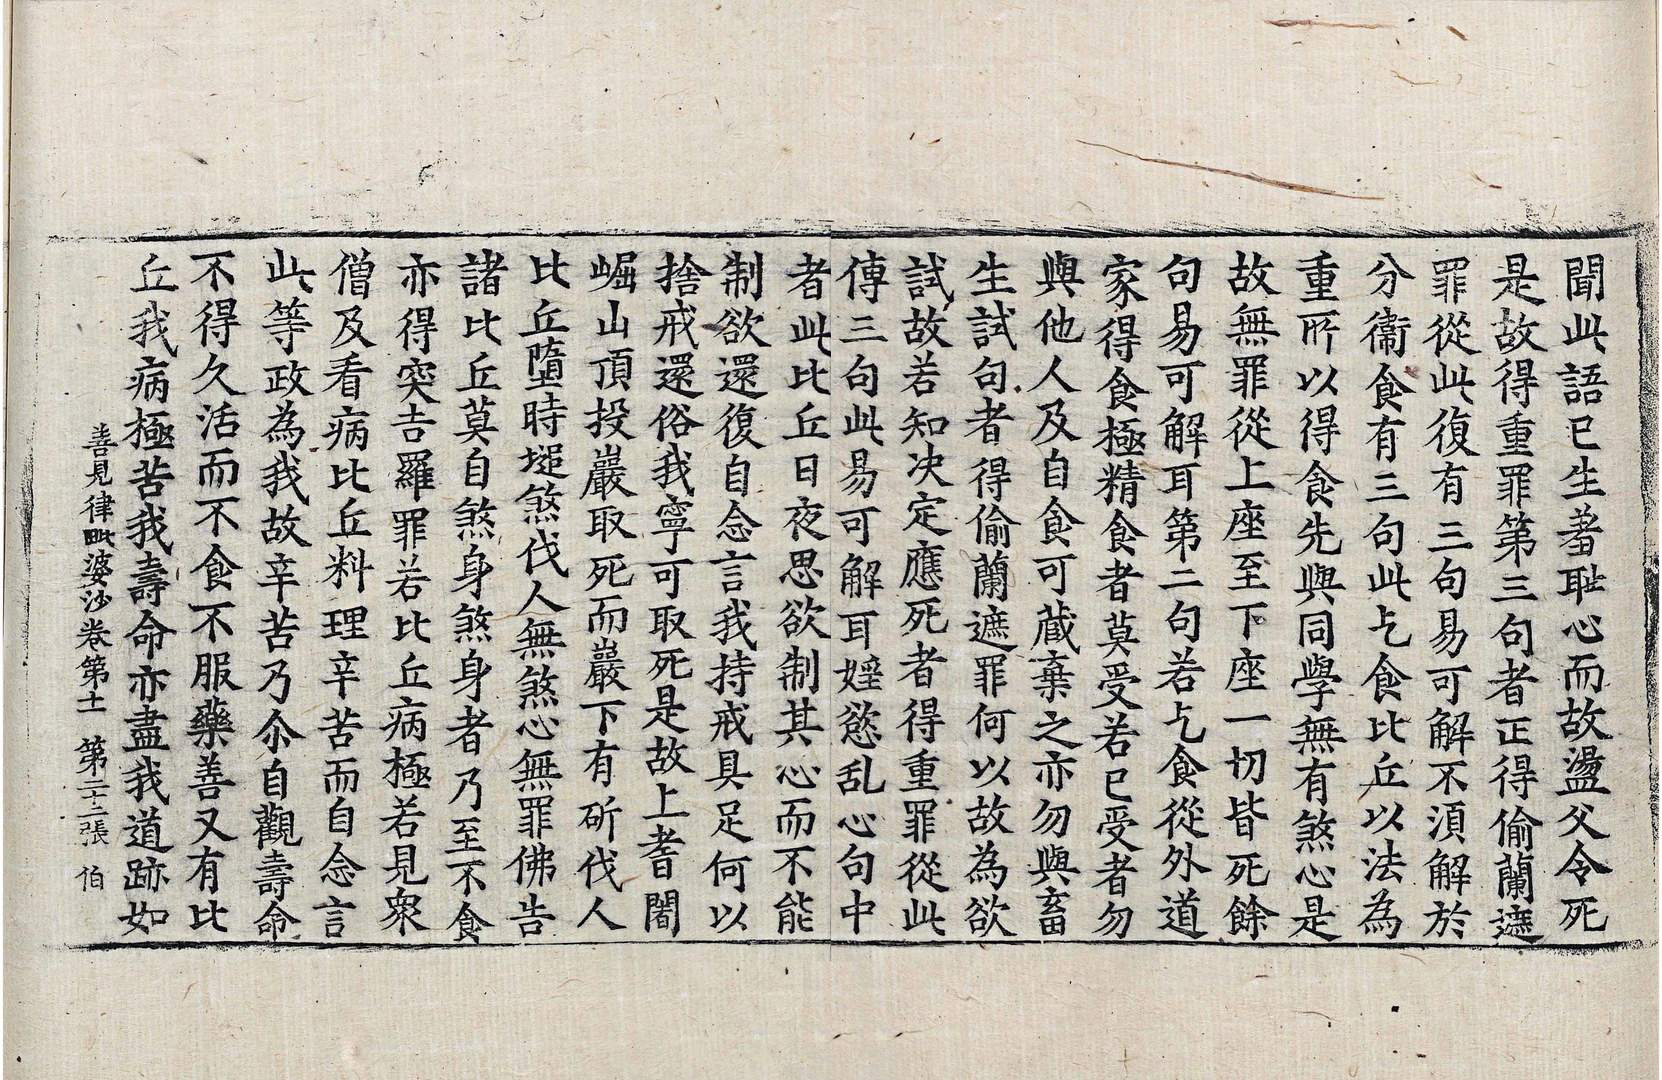 聞此語已生羞耻心而故盪父令死
是故得重罪第三句者正得偷蘭遮
罪從此復有三句易可解不湏解於
分衞食有三句此乞食比丘以法為
重所以得食先與同學無有煞心是
故無罪從上座至下座一切皆死餘
句易可解耳第二句若乞食從外道
家得食極精食者莫受若已受者勿
與他人及自食可藏棄之亦勿與畜
生試句者得偷蘭遮罪何以故為欲
試故若知决定應死者得重罪從此
傳三句此易可解耳婬慾乱心句中
者此比丘日夜思欲制其心而不能
制欲還復自念言我持戒具足何以
捨戒還俗我寧可取死是故上耆闍
崛山頂投巖取死而巖下有斫伐人
比丘墮時搥煞伐人無煞心無罪佛告
諸比丘莫自煞身煞身者乃至不食
亦得突吉羅罪若比丘病極若見衆
僧及看病比丘料理辛苦而自念言
此等政為我故辛苦乃尒自觀壽命
不得久活而不食不服藥善又有比
丘我病極苦我壽命亦盡我道跡如
善見律毗婆沙卷第十一 第二十二張 伯